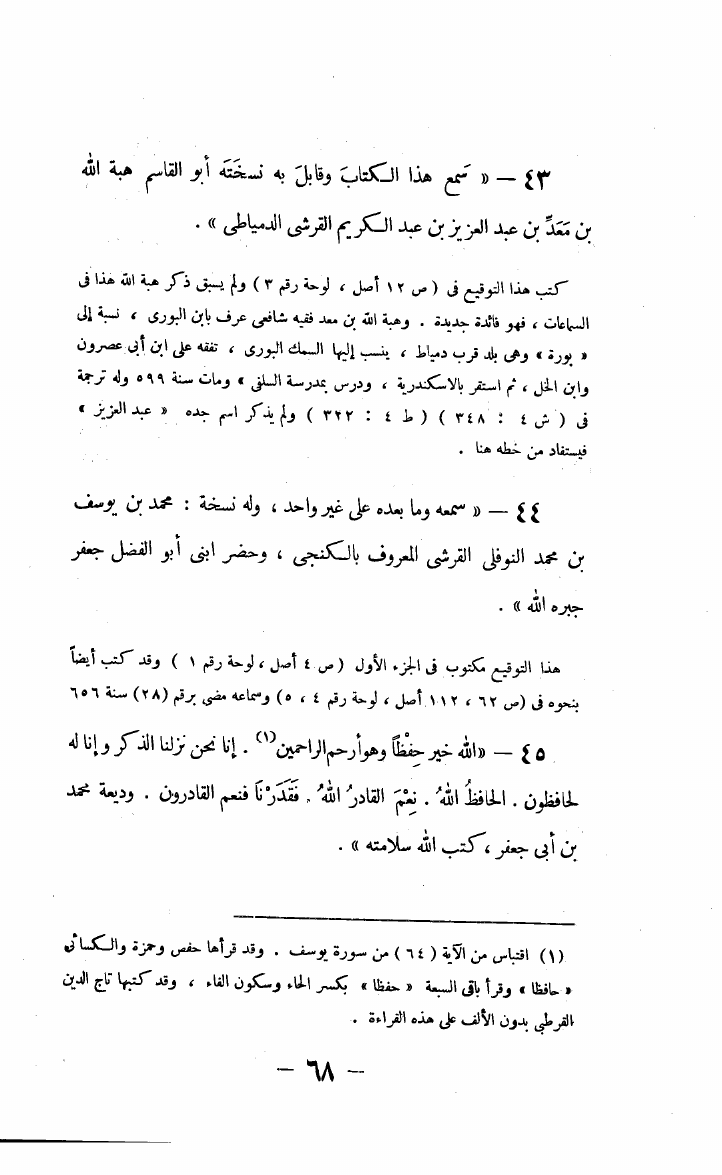 ٤٣ — « سَمع هذا الكتابَ وقابلَ به نسختَه أبو القاسم هبة الله
بن مَعَدِّ بن عبد العزيز بن عبد الكريم القرشى الدمياطى » .
كتب هذا التوقيع فى ( ص ١٢ أصل ، لوحة رقم ٣ ) ولم يسبق ذكر هبة الله هذا فى
السماعات ، فهو فائدة جديدة . وهبة الله بن معد فقيه شافعى عرف بابن البورى ، نسبة إلى
« بورة » وهى بلد قرب دمياط ، ينسب إليها السمك البورى ، تفقه على ابن أبى عصرون
وابن الخل ، ثم استقر بالاسكندرية ، ودرس بمدرسة السلفى » ومات سنة ٥٩٩ وله ترجمة
فى ( ش ٤ : ٣٤٨ ) ( ط ٤ : ٣٢٢ ) ولم يذكر اسم جده « عبد العزيز »
فيستفاد من خطه هنا .
٤٤ — « سمعه وما بعده على غير واحد ، وله نسخة : محمد بن يوسف
بن محمد النوفلى القرشى المعروف بالكنجى ، وحضر ابنى أبو الفضل جعفر
جبره الله » .
هذا التوقيع مكتوب فى الجزء الأول ( ص ٤ أصل ، لوحة رقم ١ ) وقد كتب أيضاً
بنحوه فى (ص ٦٢ ، ١١٢ أصل ، لوحة رقم ٤ ، ٥) وسماعه مضى برقم (٢٨) سنة ٦٥٦
٤٥ — «الله خير حِفْظاً وهو أرحم الراحمين(١) . إنا نحن نزلنا الذكر وإنا له
لحافظون . الحافظُ اللهُ . نِعْمَ القادرُ اللهُ . فَقَدَرْنَا فنعم القادرون . وديعة محمد
بن أبى جعفر ، كتب الله سلامته » .
(١) اقتباس من الآية ( ٦٤ ) من سورة يوسف . وقد قرأها حفص وحمزة والكسائى
« حافظا » وقرأ باقى السبعة « حفظا » بكسر الحاء وسكون الفاء ، وقد كتبها تاج الدين
القرطبى بدون الألف على هذه القراءة .
— ٦٨ —